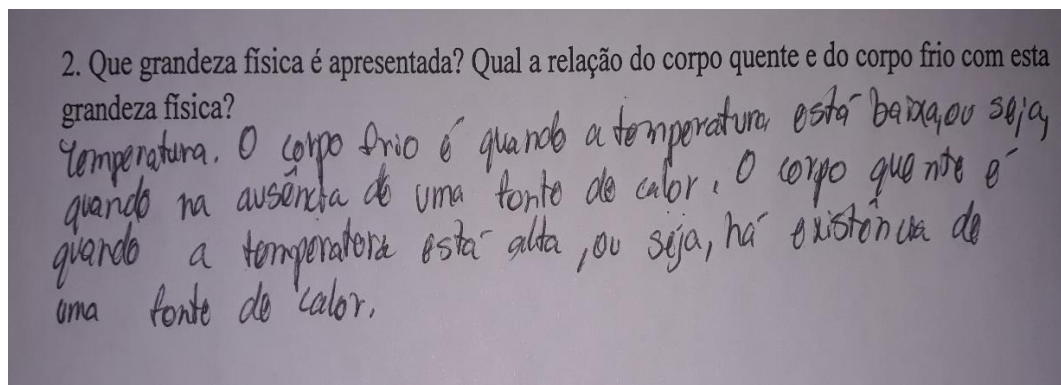 2. Que grandeza física é apresentada? Qual a relação do corpo quente e do corpo frio com esta
grandeza física?
Temperatura. O corpo frio é quando a temperatura está baixa, ou seja,
quando na ausência de uma fonte de calor. O corpo quente é
quando a temperatura está alta, ou seja, há existência de
uma fonte de calor.